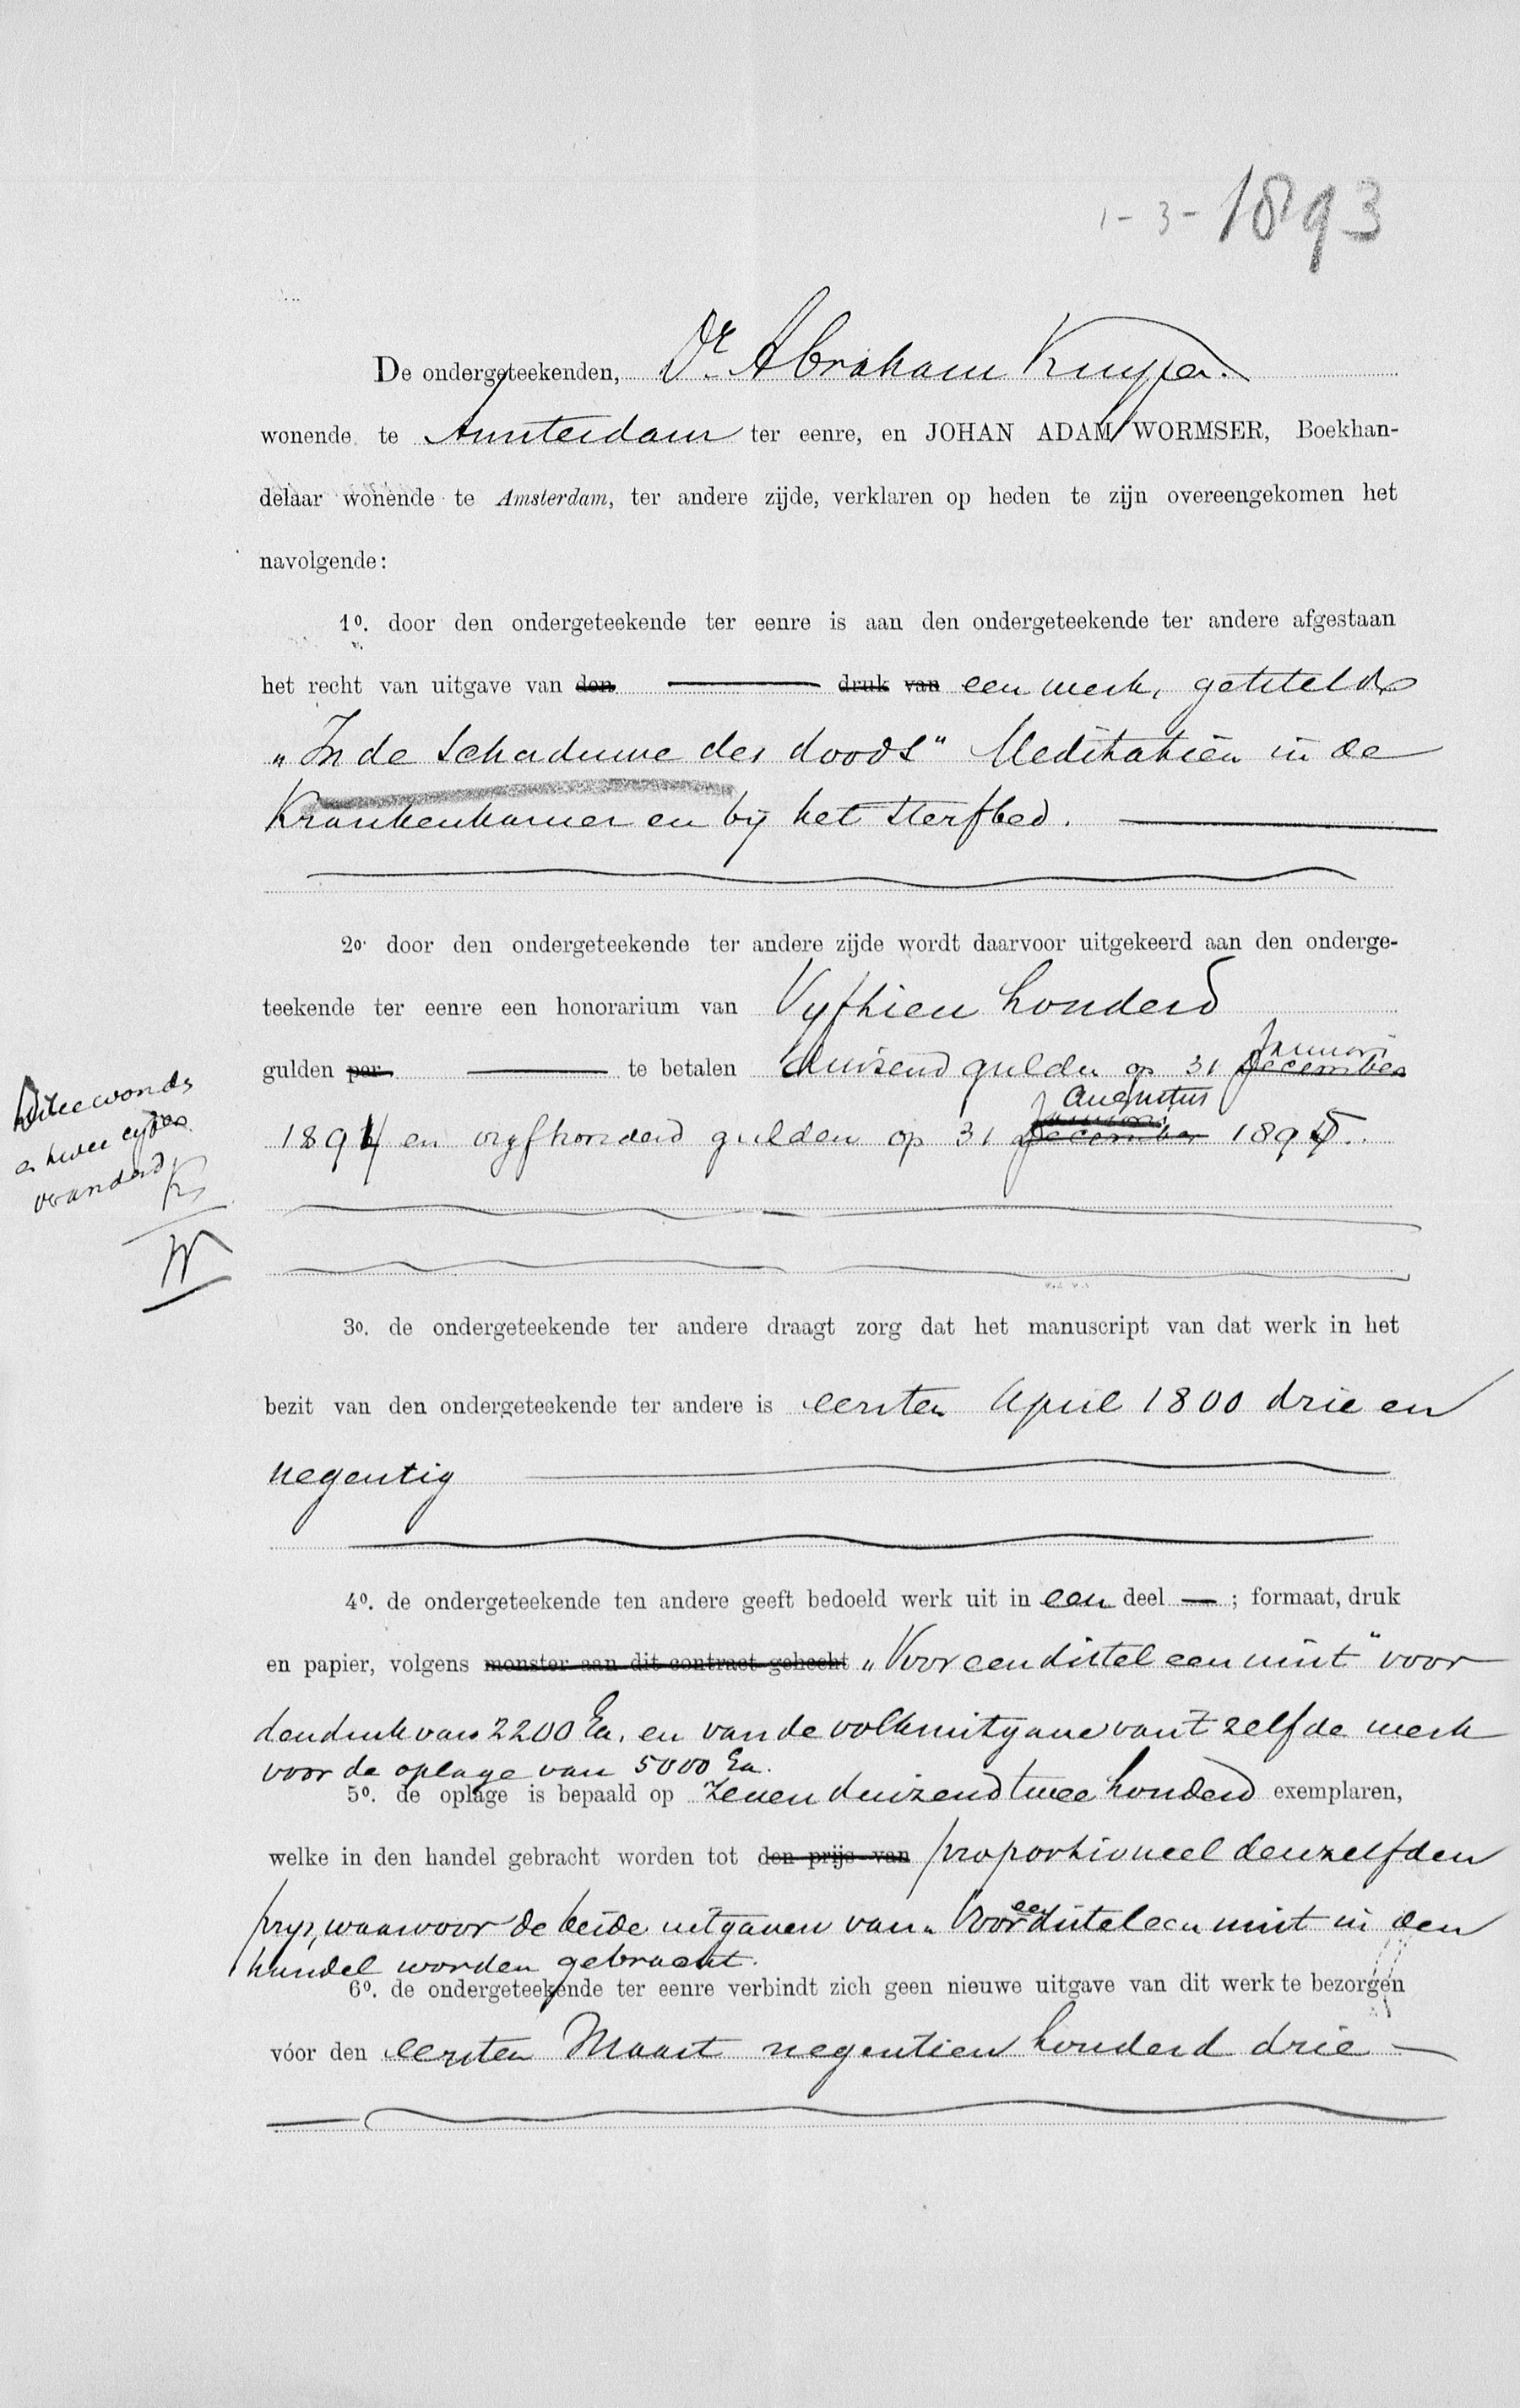 1-3-1893
De ondergeteekenden, Dr. Abraham Kuyper.
wonende te Amsterdam ter eenre, en JOHAN ADAM WORMSER, Boekhan-
delaar wonende te Amsterdam, ter andere zijde, verklaren op heden te zijn overeengekomen het
navolgende:
1o. door den ondergeteekende ter eenre is aan den ondergeteekende ter andere afgestaan
het recht van uitgave van den druk van een werk, getiteld
„In de Schaduwe des doods" Meditatiën in de
Krankenkamer en bij het Sterfbed.
2o. door den ondergeteekende ter andere zijde wordt daarvoor uitgekeerd aan den onderge-
teekende ter eenre een honorarium van Vyftien honderd
Januari
gulden per te betalen duizend gulden op 31 December
Augustus
Januari
1894 en vyfhonderd gulden op 31 December 1895.
woorden
en twee cyfers
veranderd
K
W
3o. de ondergeteekende ter andere draagt zorg dat het manuscript van dat werk in het
bezit van den ondergeteekende ter andere is eersten April 1800 drie en
negentig
4o. de ondergeteekende ten andere geeft bedoeld werk uit in een deel — ; formaat, druk
en papier, volgens monster aan dit contract gehecht „Voor een distel een mirt" voor
den druk van 2200 Ex. en van de volksuitgave van 't zelfde werk
voor de oplage van 5000 Ex.
5o. de oplage is bepaald op Zeven duizend twee honderd exemplaren,
welke in den handel gebracht worden tot den prijs van proportioneel denzelfden
prys, waarvoor de beide uitgaven van „Voor een distel een mirt in den
handel worden gebracht.
6o. de ondergeteekende ter eenre verbindt zich geen nieuwe uitgave van dit werk te bezorgen
vóor den eersten Maart negentien honderd drie —